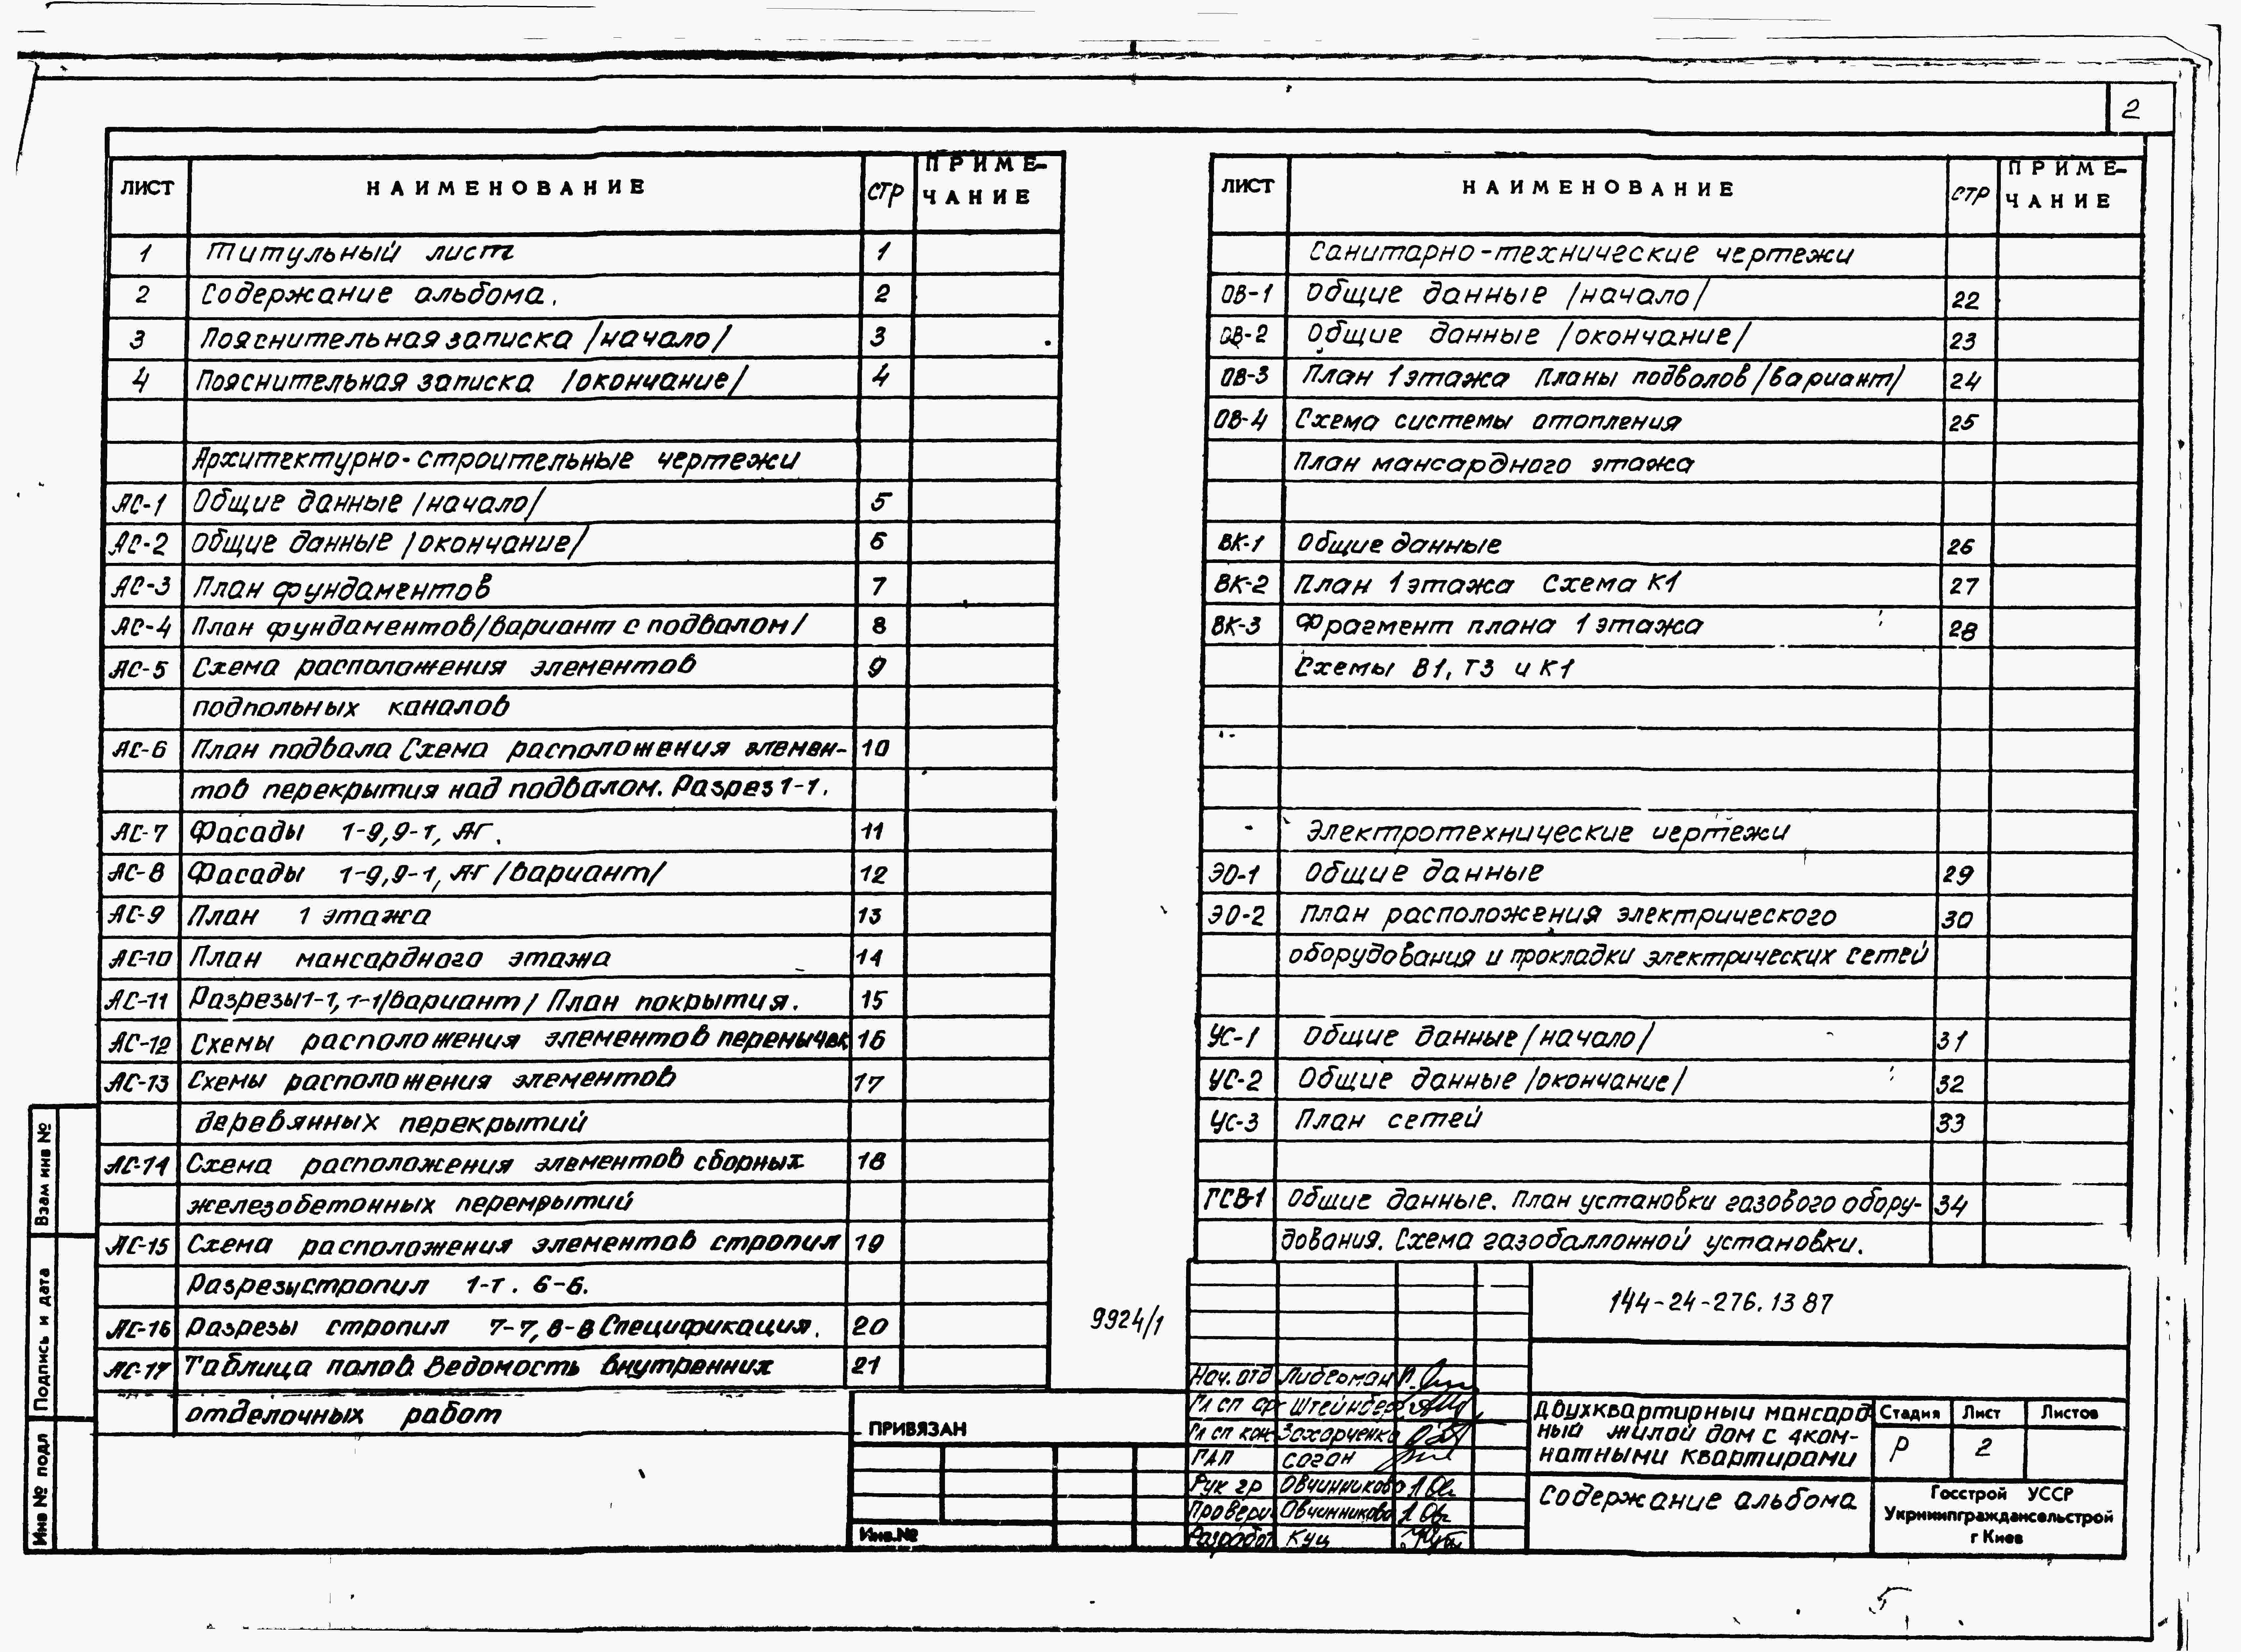 2
ЛИСТ НАИМЕНОВАНИЕ СТР ПРИМЕ-
ЧАНИЕ
1 Титульный лист 1
2 Содержание альбома. 2
3 Пояснительная записка /начало/ 3
4 Пояснительная записка /окончание/ 4
Архитектурно-строительные чертежи
АС-1 Общие данные /начало/ 5
АС-2 Общие данные /окончание/ 6
АС-3 План фундаментов 7
АС-4 План фундаментов/вариант с подвалом/ 8
АС-5 Схема расположения элементов 9
подпольных каналов
АС-6 План подвала Схема расположения элемен- 10
тов перекрытия над подвалом. Разрез 1-1.
АС-7 Фасады 1-9, 9-1, АГ. 11
АС-8 Фасады 1-9, 9-1, АГ /вариант/ 12
АС-9 План 1 этажа 13
АС-10 План мансардного этажа 14
АС-11 Разрезы 1-1, 1-1/вариант/ План покрытия. 15
АС-12 Схемы расположения элементов перемычек 16
АС-13 Схемы расположения элементов 17
деревянных перекрытий
АС-14 Схема расположения элементов сборных 18
железобетонных перекрытий
АС-15 Схема расположения элементов стропил 19
Разрезы стропил 1-1. 6-6.
АС-16 Разрезы стропил 7-7, 8-8 Спецификация. 20
АС-17 Таблица полов Ведомость внутренних 21
отделочных работ
ЛИСТ НАИМЕНОВАНИЕ СТР ПРИМЕ-
ЧАНИЕ
Санитарно-технические чертежи
ОВ-1 Общие данные /начало/ 22
ОВ-2 Общие данные /окончание/ 23
ОВ-3 План 1 этажа Планы подвалов /вариант/ 24
ОВ-4 Схема системы отопления 25
План мансардного этажа
ВК-1 Общие данные 26
ВК-2 План 1 этажа Схема К1 27
ВК-3 Фрагмент плана 1 этажа 28
Схемы В1, Т3 и К1
Электротехнические чертежи
ЭО-1 Общие данные 29
ЭО-2 План расположения электрического 30
оборудования и прокладки электрических сетей
УС-1 Общие данные /начало/ 31
УС-2 Общие данные /окончание/ 32
УС-3 План сетей 33
ГСВ-1 Общие данные. План установки газового обору- 34
дования. Схема газобаллонной установки.
Взам инв №
Подпись и дата
Инв № подл
9924/1
ПРИВЯЗАН
Инв.№
144-24-276.13 87
Нач. отд Либерман
Гл сп ар Штейнберг
Гл сп кон Захарченко
ГАП Соган
Рук гр Овчинникова
Провери Овчинникова
Разработ Куц
Двухквартирный мансард
ный жилой дом с 4ком-
натными квартирами
Стадия Лист Листов
Р 2
Содержание альбома
Госстрой УССР
Укрниипграждансельстрой
г Киев